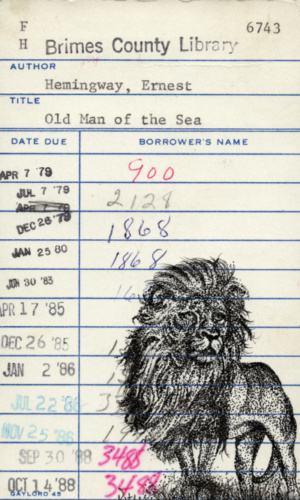 F 6743
H Brimes County Library
AUTHOR
Hemingway, Ernest
TITLE
Old Man of the Sea
DATE DUE BORROWER'S NAME
APR 7 '79 900
JUL 7 '79 2128
APR 7 79
DEC 26 '79 1868
JAN 25 80 1868
JUN 30 '83
APR 17 '85
DEC 26 '85
JAN 2 '86
JUL 22 '86
NOV 25 '86
SEP 30 '88 3488
OCT 14 '88 3488
GAYLORD 45